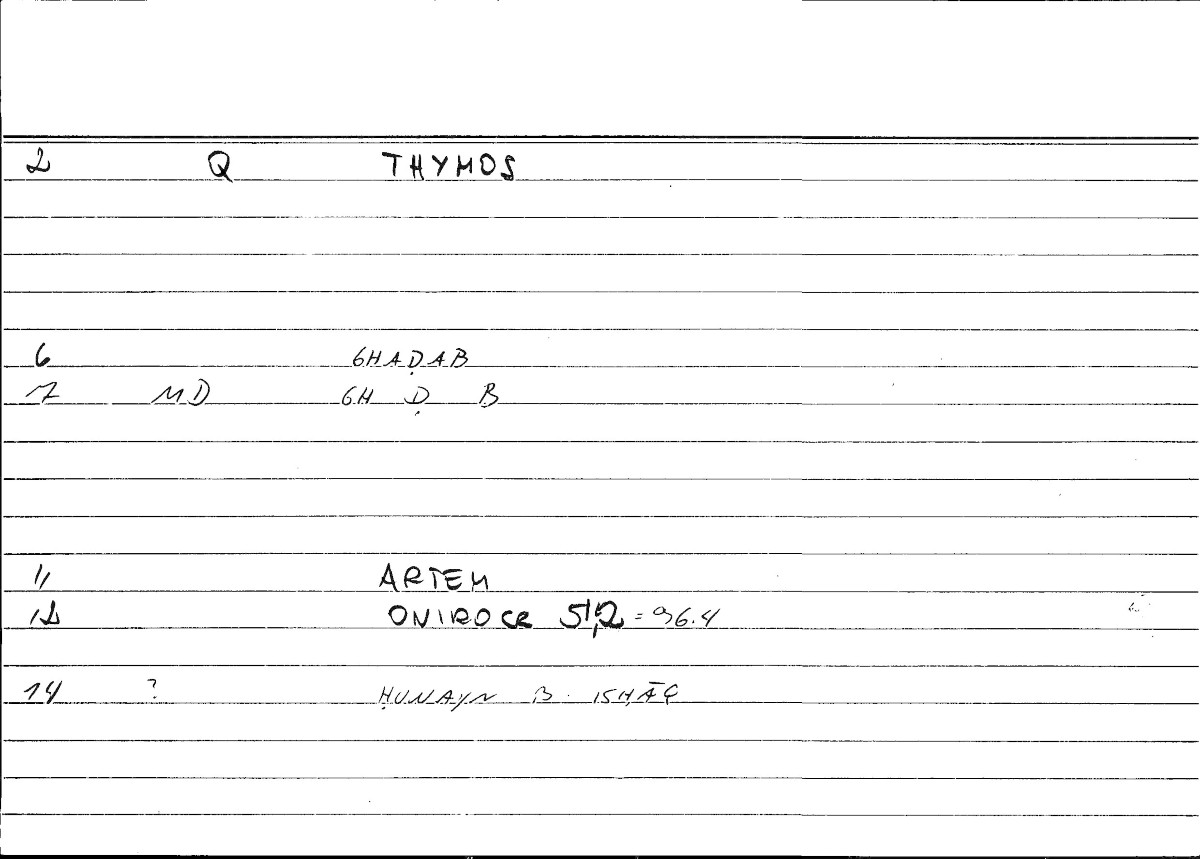 2 Q THYMOS
6 GHAḌAB
7 MD GH Ḍ B
11 ARTEM
12 ONIROCR 51,2 = 96.4
14 ? ḤUNAYN B. ISḤĀQ